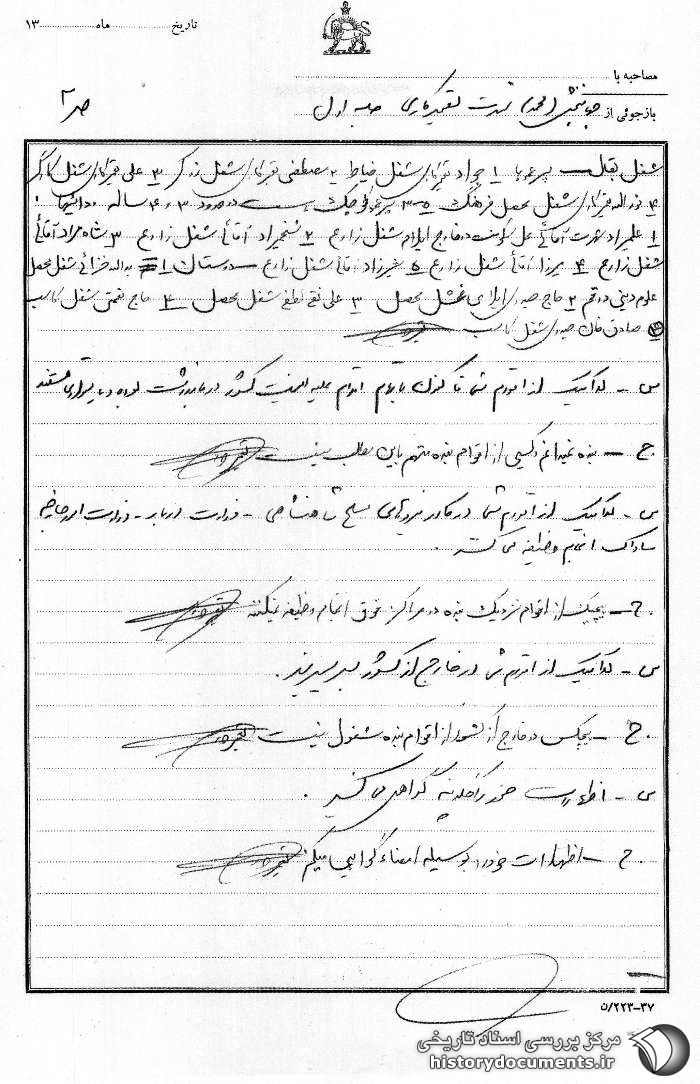 تاریخ ............ ماه ............ ۱۳
مصاحبه با
بازجوئی از (محمد) شهرت جلسه اول
ص ۲
شغل بقال — پسر عموها ۱ جواد شغل خیاط ۲ مصطفی شغل زرگر ۳ علی شغل کارگر
۴ شغل محصل فرهنگ ۵ - ۳ پسر عمو کوچک هست در حدود ۳ و ۴ ساله
۱ علیمراد شهرت آقائی محل سکونت در خارج ایلام شغل زارع ۲ آقائی شغل زارع ۳ شاه مراد آقائی
شغل زارع ۴ میرزا آقائی شغل زارع ۵ شیرزاد آقائی شغل زارع — دوستان ۱ یداله خزائی شغل محصل
علوم دینی در قم ۲ حاج شغل محصل ۳ علی نقی لطفی شغل محصل ۴ حاج نعمتی شغل کاسب
۵ صادق خان شغل کاسب
س - کدامیک از اقوام شما تاکنون اقدام علیه امنیت کشور در بازداشت بوده و یا متواری هستند
ج — بنده نمیدانم و کسی از اقوام بنده متهم باین مطلب نیست
س - کدامیک از اقوام شما در کادر نیروهای مسلح شاهنشاهی - وزارت دربار - وزارت امور خارجه
ساواک انجام وظیفه می کنند .
ج — هیچیک از اقوام نزدیک بنده در مراکز فوق انجام وظیفه نمیکنند
س - کدامیک از اقوام شما در خارج از کشور بسر میبرند .
ج - هیچکس در خارج از کشور از اقوام بنده مشغول نیست
س - اظهارات خود را چگونه گواهی می کنید .
ج - اظهارات خود را بوسیله امضاء گواهی میکنم
۳۷-۲۲۳/ن
مرکز بررسی اسناد تاریخی
historydocuments.ir